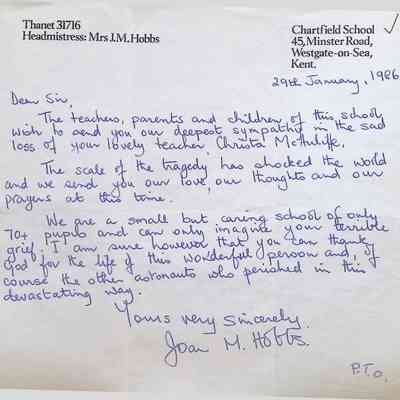 Thanet 31716
Headmistress: Mrs J.M. Hobbs
Chartfield School
45, Minster Road,
Westgate-on-Sea,
Kent.
29th January, 1986
Dear Sir,
The teachers, parents and children of this school
wish to send you our deepest sympathy in the sad
loss of your lovely teacher, Christa McAuliffe.
The scale of the tragedy has shocked the world
and we send you our love, our thoughts and our
prayers at this time.
We are a small but caring school of only
70+ pupils and can only imagine your terrible
grief. I am sure however that you can thank
God for the life of this wonderful person and, of
course the other astronauts who perished in this
devastating way.
Yours very sincerely.
Joan M. Hobbs.
P.T.O.